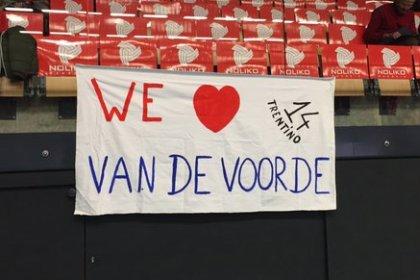 NOLIKO NOLIKO NOLIKO NOLIKO NOLIKO
NOLIKO NOLIKO NOLIKO NOLIKO NOLIKO
WE ❤ 14
TRENTINO
VAN DE VOORDE